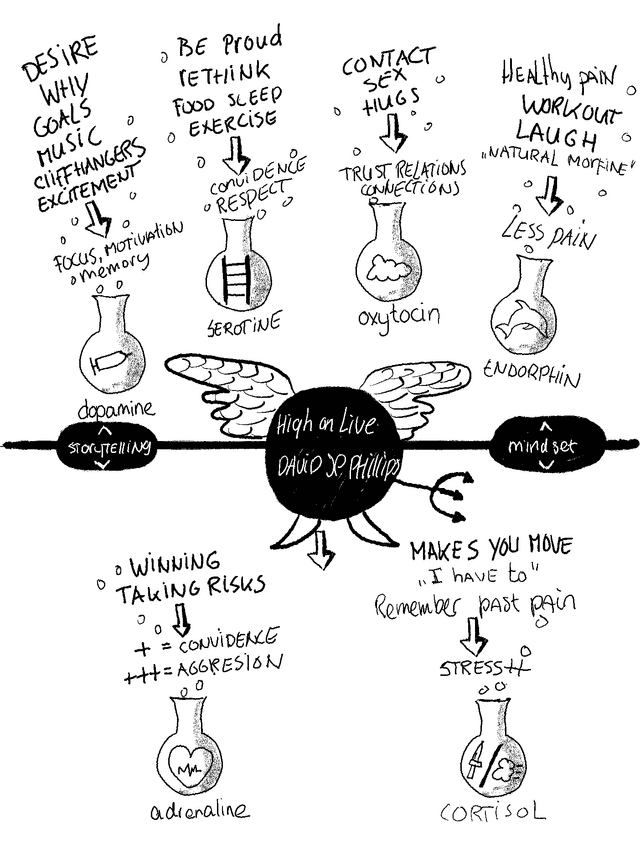 DESIRE
WHY
GOALS
MUSIC
CLIFFHANGERS
EXCITEMENT
FOCUS, MOTIVATION
memory
dopamine
BE PROUD
RETHINK
FOOD SLEEP
EXERCISE
CONVIDENCE
RESPECT
SEROTINE
CONTACT
SEX
HUGS
TRUST RELATIONS
CONNECTIONS
oxytocin
Healthy pain
WORKOUT
LAUGH
„NATURAL MORFINE"
LESS PAIN
ENDORPHIN
STORYTELLING
High on Live
DAVID JP PHILLIPS
mindset
WINNING
TAKING RISKS
+ = CONVIDENCE
+++ = AGGRESION
adrenaline
MAKES YOU MOVE
„I HAVE to"
Remember past pain
STRESS++
CORTISOL